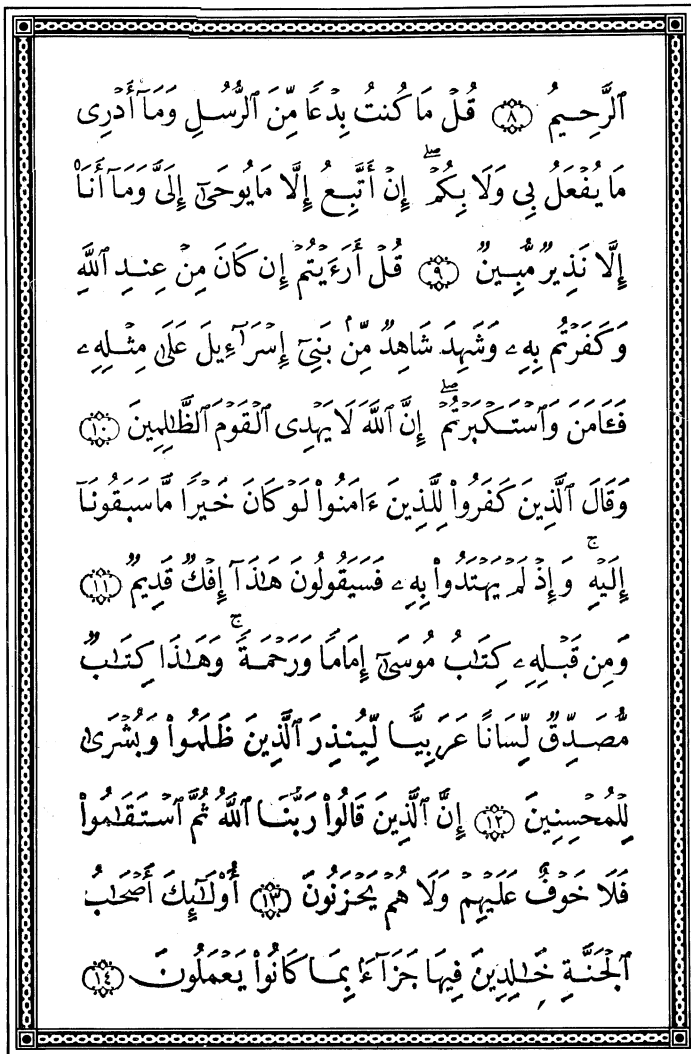 ٱلرَّحِيمُ ﴿٨﴾ قُلۡ مَا كُنتُ بِدۡعٗا مِّنَ ٱلرُّسُلِ وَمَآ أَدۡرِي
مَا يُفۡعَلُ بِي وَلَا بِكُمۡۖ إِنۡ أَتَّبِعُ إِلَّا مَا يُوحَىٰٓ إِلَيَّ وَمَآ أَنَا۠
إِلَّا نَذِيرٞ مُّبِينٞ ﴿٩﴾ قُلۡ أَرَءَيۡتُمۡ إِن كَانَ مِنۡ عِندِ ٱللَّهِ
وَكَفَرۡتُم بِهِۦ وَشَهِدَ شَاهِدٞ مِّنۢ بَنِيٓ إِسۡرَٰٓءِيلَ عَلَىٰ مِثۡلِهِۦ
فَـَٔامَنَ وَٱسۡتَكۡبَرۡتُمۡۖ إِنَّ ٱللَّهَ لَا يَهۡدِي ٱلۡقَوۡمَ ٱلظَّٰلِمِينَ ﴿١٠﴾
وَقَالَ ٱلَّذِينَ كَفَرُواْ لِلَّذِينَ ءَامَنُواْ لَوۡ كَانَ خَيۡرٗا مَّا سَبَقُونَآ
إِلَيۡهِۚ وَإِذۡ لَمۡ يَهۡتَدُواْ بِهِۦ فَسَيَقُولُونَ هَٰذَآ إِفۡكٞ قَدِيمٞ ﴿١١﴾
وَمِن قَبۡلِهِۦ كِتَٰبُ مُوسَىٰٓ إِمَامٗا وَرَحۡمَةٗۚ وَهَٰذَا كِتَٰبٞ
مُّصَدِّقٞ لِّسَانًا عَرَبِيّٗا لِّيُنذِرَ ٱلَّذِينَ ظَلَمُواْ وَبُشۡرَىٰ
لِلۡمُحۡسِنِينَ ﴿١٢﴾ إِنَّ ٱلَّذِينَ قَالُواْ رَبُّنَا ٱللَّهُ ثُمَّ ٱسۡتَقَٰمُواْ
فَلَا خَوۡفٌ عَلَيۡهِمۡ وَلَا هُمۡ يَحۡزَنُونَ ﴿١٣﴾ أُوْلَٰٓئِكَ أَصۡحَٰبُ
ٱلۡجَنَّةِ خَٰلِدِينَ فِيهَا جَزَآءَۢ بِمَا كَانُواْ يَعۡمَلُونَ ﴿١٤﴾